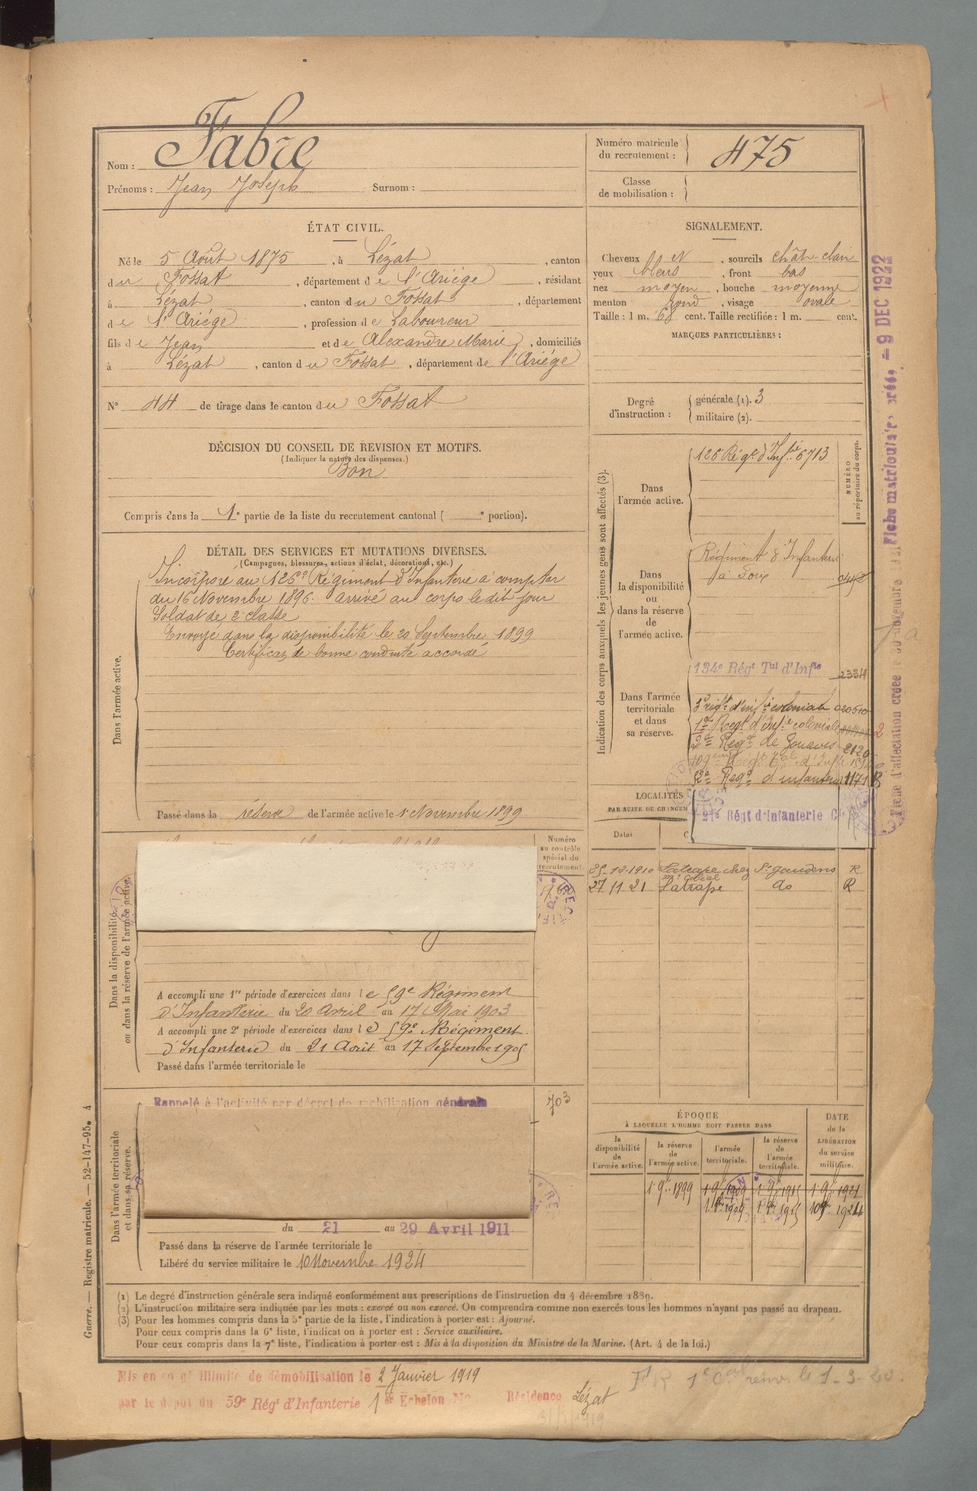 Nom : Fabre
Prénoms : Jean Joseph Surnom :
Numéro matricule du recrutement : 475
Classe de mobilisation :
ÉTAT CIVIL.
Né le 5 Août 1875, à Lézat, canton
du Fossat, département de l'Ariége, résidant
à Lézat, canton du Fossat, département
de l'Ariége, profession de Laboureur
fils de Jean et de Alexandre Marie, domiciliés
à Lézat, canton du Fossat, département de l'Ariége
N° 44 de tirage dans le canton du Fossat
SIGNALEMENT.
Cheveux et, sourcils chât-clair
yeux bleus, front bas
nez moyen, bouche moyenne
menton rond, visage ovale
Taille : 1 m. 68 cent. Taille rectifiée : 1 m. cent.
MARQUES PARTICULIÈRES :
Degré d'instruction : générale (1). 3
militaire (2).
DÉCISION DU CONSEIL DE REVISION ET MOTIFS.
(Indiquer la nature des dispenses.)
Bon
Compris dans la 1e partie de la liste du recrutement cantonal ( e portion).
DÉTAIL DES SERVICES ET MUTATIONS DIVERSES.
(Campagnes, blessures, actions d'éclat, décorations, etc.)
Dans l'armée active.
Incorporé au 126e Régiment d'Infanterie à compter
du 16 Novembre 1896. arrivé au corps le dit jour
Soldat de 2e classe
Envoyé dans la disponibilité le 20 Septembre 1899
Certificat de bonne conduite accordé
Passé dans la réserve de l'armée active le 1 Novembre 1899
Indication des corps auxquels les jeunes gens sont affectés (3).
NUMÉRO au répertoire du corps.
Dans l'armée active.
126 Régt d'Inf.ie 6713
Dans la disponibilité ou dans la réserve de l'armée active.
Régiment d'Infanterie
à Foix
Dans l'armée territoriale et dans sa réserve.
134e Régt Tal d'Infie 2334
3e régt d'infie coloniale
1er Régt d'Infie coloniale
2e Régt de Zouaves 2120
Régt d'infanterie
Régt d'Infanterie C
LOCALITÉS
PAR SUITE DE CHANGEM
Dates
25-12-1910 Latrape chez St Gaudens R
27 11 21 Latrape do R
Numéro au contrôle spécial du recrutement.
Dans la disponibilité ou dans la réserve de l'armée active.
A accompli une 1re période d'exercices dans le 59e Régiment
d'Infanterie du 20 avril au 17 Mai 1903
A accompli une 2e période d'exercices dans le 59e Régiment
d'Infanterie du 21 Août au 17 Septembre 1905
Passé dans l'armée territoriale le
Dans l'armée territoriale et dans sa réserve.
Rappelé à l'activité par décret de mobilisation générale
703
du 21 au 29 Avril 1911
Passé dans la réserve de l'armée territoriale le
Libéré du service militaire le 10 Novembre 1924
ÉPOQUE
À LAQUELLE L'HOMME DOIT PASSER DANS
la disponibilité de l'armée active.
la réserve de l'armée active.
l'armée territoriale.
la réserve de l'armée territoriale.
DATE de la LIBÉRATION du service militaire.
1 9e 1899
(1) Le degré d'instruction générale sera indiqué conformément aux prescriptions de l'instruction du 4 décembre 1889.
(2) L'instruction militaire sera indiquée par les mots : exercé ou non exercé. On comprendra comme non exercés tous les hommes n'ayant pas passé au drapeau.
(3) Pour les hommes compris dans la 5e partie de la liste, l'indication à porter est : Ajourné.
Pour ceux compris dans la 6e liste, l'indication à porter est : Service auxiliaire.
Pour ceux compris dans la 7e liste, l'indication à porter est : Mis à la disposition du Ministre de la Marine. (Art. 4 de la loi.)
Mis en congé illimité de démobilisation le 2 Janvier 1919
par le dépôt du 59e Régt d'Infanterie 1er Échelon No Résidence Lézat
Guerre. — Registre matricule. — 52-147-95. 4
Fiche matriculaire créée, — 9 DEC 1922